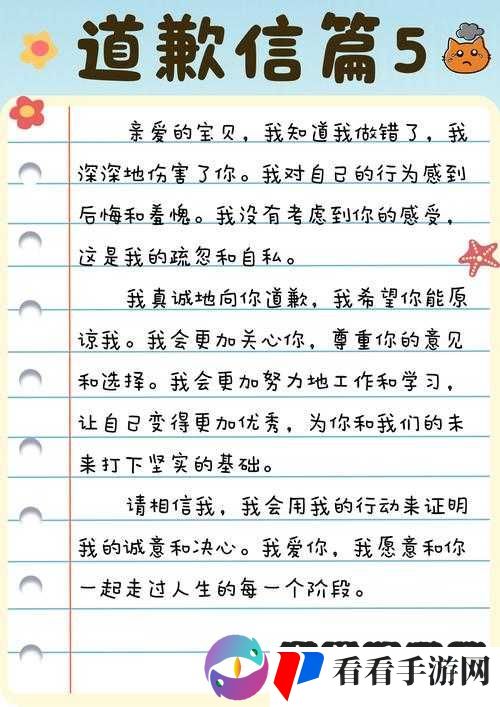 道歉信篇5
亲爱的宝贝，我知道我做错了，我
深深地伤害了你。我对自己的行为感到
后悔和羞愧。我没有考虑到你的感受，
这是我的疏忽和自私。
我真诚地向你道歉，我希望你能原
谅我。我会更加关心你，尊重你的意见
和选择。我会更加努力地工作和学习，
让自己变得更加优秀，为你和我们的未
来打下坚实的基础。
请相信我，我会用我的行动来证明
我的诚意和决心。我爱你，我愿意和你
一起走过人生的每一个阶段。
看看手游网